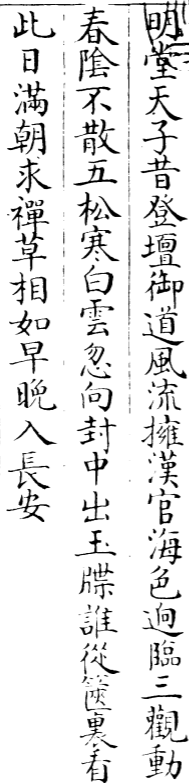 明堂天子昔登壇御道風流擁漢官海色逈臨三觀動
春陰不散五松寒白雲忽向封中出玉牒誰從篋裏看
此日滿朝求禪草相如早晩入長安